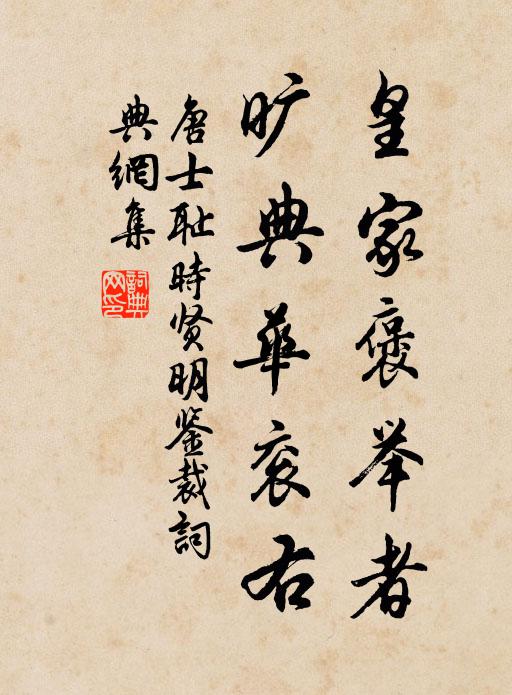 皇家褒举者
旷典华衮右
唐士耻时贤明鉴裁词
典網集
詞典網印